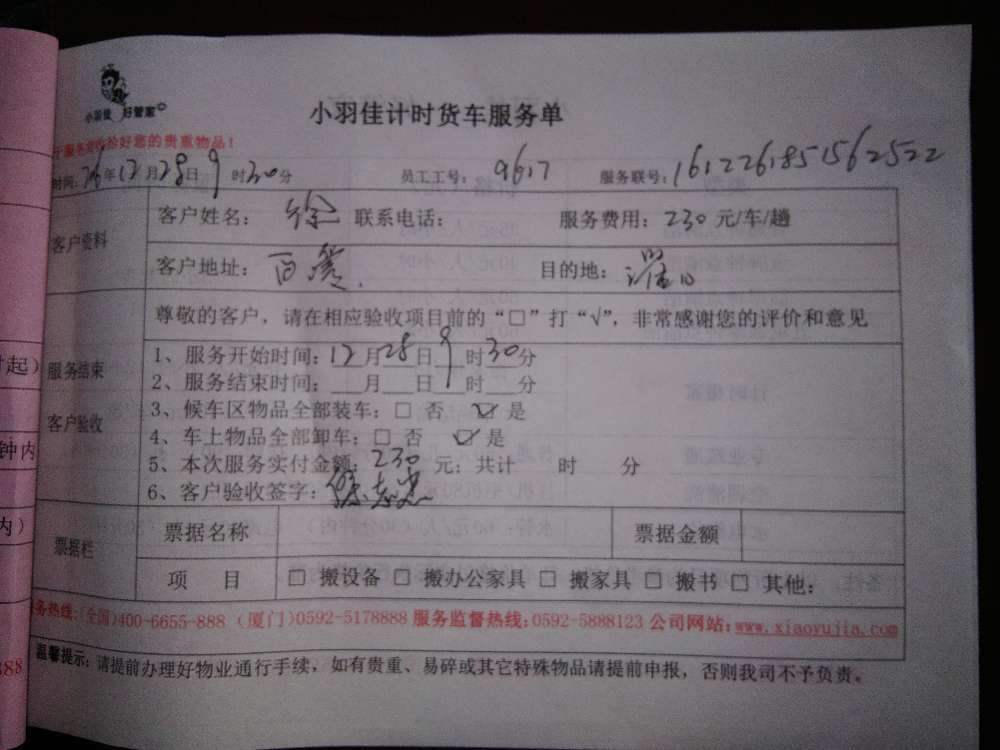 小羽佳 好管家
小羽佳计时货车服务单
好您的贵重物品！
时间：16年12月28日9时30分 员工工号：9617 服务联号：1612261851562522
客户资料
客户姓名：徐 联系电话： 服务费用：230元/车/趟
客户地址： 目的地：
尊敬的客户，请在相应验收项目前的“□”打“√”，非常感谢您的评价和意见
服务结束
客户验收
1、服务开始时间：12月28日9时30分
2、服务结束时间：___月___日___时___分
3、候车区物品全部装车：□ 否 ☑ 是
4、车上物品全部卸车：□ 否 ☑ 是
5、本次服务实付金额：230元；共计 时 分
6、客户验收签字：
票据栏
票据名称 票据金额
项 目 □ 搬设备 □ 搬办公家具 □ 搬家具 □ 搬书 □ 其他：
务热线：(全国)400-6655-888 (厦门)0592-5178888 服务监督热线：0592-5888123 公司网站：www.xiaoyujia.com
温馨提示：请提前办理好物业通行手续，如有贵重、易碎或其它特殊物品请提前申报，否则我司不予负责。
时起)
钟内
内)
888